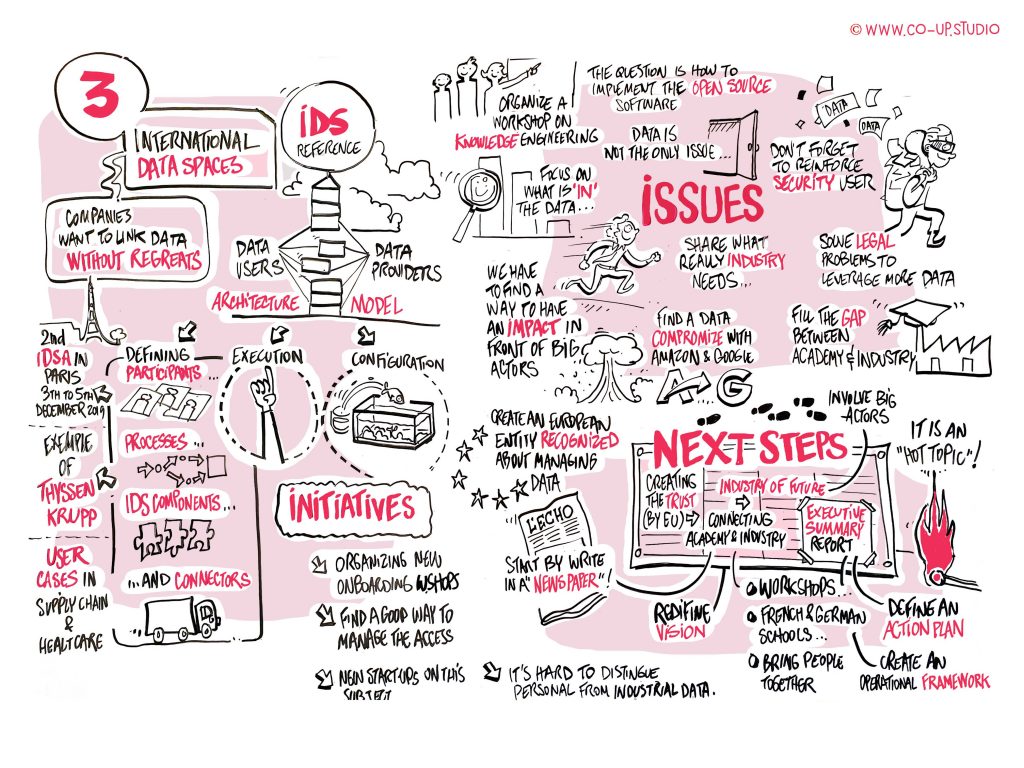 © WWW.CO-UP.STUDIO
3
INTERNATIONAL
DATA SPACES
IDS
REFERENCE
COMPANIES
WANT TO LINK DATA
WITHOUT REGREATS
DATA
USERS
DATA
PROVIDERS
ARCHITECTURE
MODEL
2nd
IDSA IN
PARIS
3TH TO 5TH
DECEMBER 2019
EXEMPLE
OF
THYSSEN
KRUPP
USER
CASES IN
SUPPLY CHAIN
&
HEALTCARE
DEFINING
PARTICIPANTS...
PROCESSES...
IDS COMPONENTS...
...AND CONNECTORS
EXECUTION
CONFIGURATION
INITIATIVES
ORGANIZING NEW
ONBOARDING WSHOPS
FIND A GOOD WAY TO
MANAGE THE ACCESS
NEW START-UPS ON THIS
SUBJECT
ORGANIZE A
WORKSHOP ON
KNOWLEDGE ENGINEERING
THE QUESTION IS HOW TO
IMPLEMENT THE OPEN SOURCE
SOFTWARE
DATA IS
NOT THE ONLY ISSUE...
DATA
DATA
DON'T FORGET
TO REINFORCE
SECURITY USER
FOCUS ON
WHAT IS 'IN'
THE DATA...
ISSUES
SHARE WHAT
REALLY INDUSTRY
NEEDS...
SOLVE LEGAL
PROBLEMS TO
LEVERAGE MORE DATA
WE HAVE
TO FIND A
WAY TO HAVE
AN IMPACT IN
FRONT OF BIG
ACTORS
FIND A DATA
COMPROMIZE WITH
AMAZON & GOOGLE
A G
FILL THE GAP
BETWEEN
ACADEMY & INDUSTRY
CREATE AN EUROPEAN
ENTITY RECOGNIZED
ABOUT MANAGING
DATA
INVOLVE BIG
ACTORS
IT IS AN
"HOT TOPIC"!
NEXT STEPS
CREATING
THE TRUST
(BY EU)
INDUSTRY OF FUTURE
CONNECTING
ACADEMY & INDUSTRY
EXECUTIVE
SUMMARY
REPORT
L'ECHO
START BY WRITE
IN A "NEWSPAPER"!
REDIFINE
VISION
WORKSHOPS...
FRENCH & GERMAN
SCHOOLS...
BRING PEOPLE
TOGETHER
DEFINE AN
ACTION PLAN
CREATE AN
OPERATIONAL FRAMEWORK
IT'S HARD TO DISTINGUE
PERSONAL FROM INDUSTRIAL DATA.